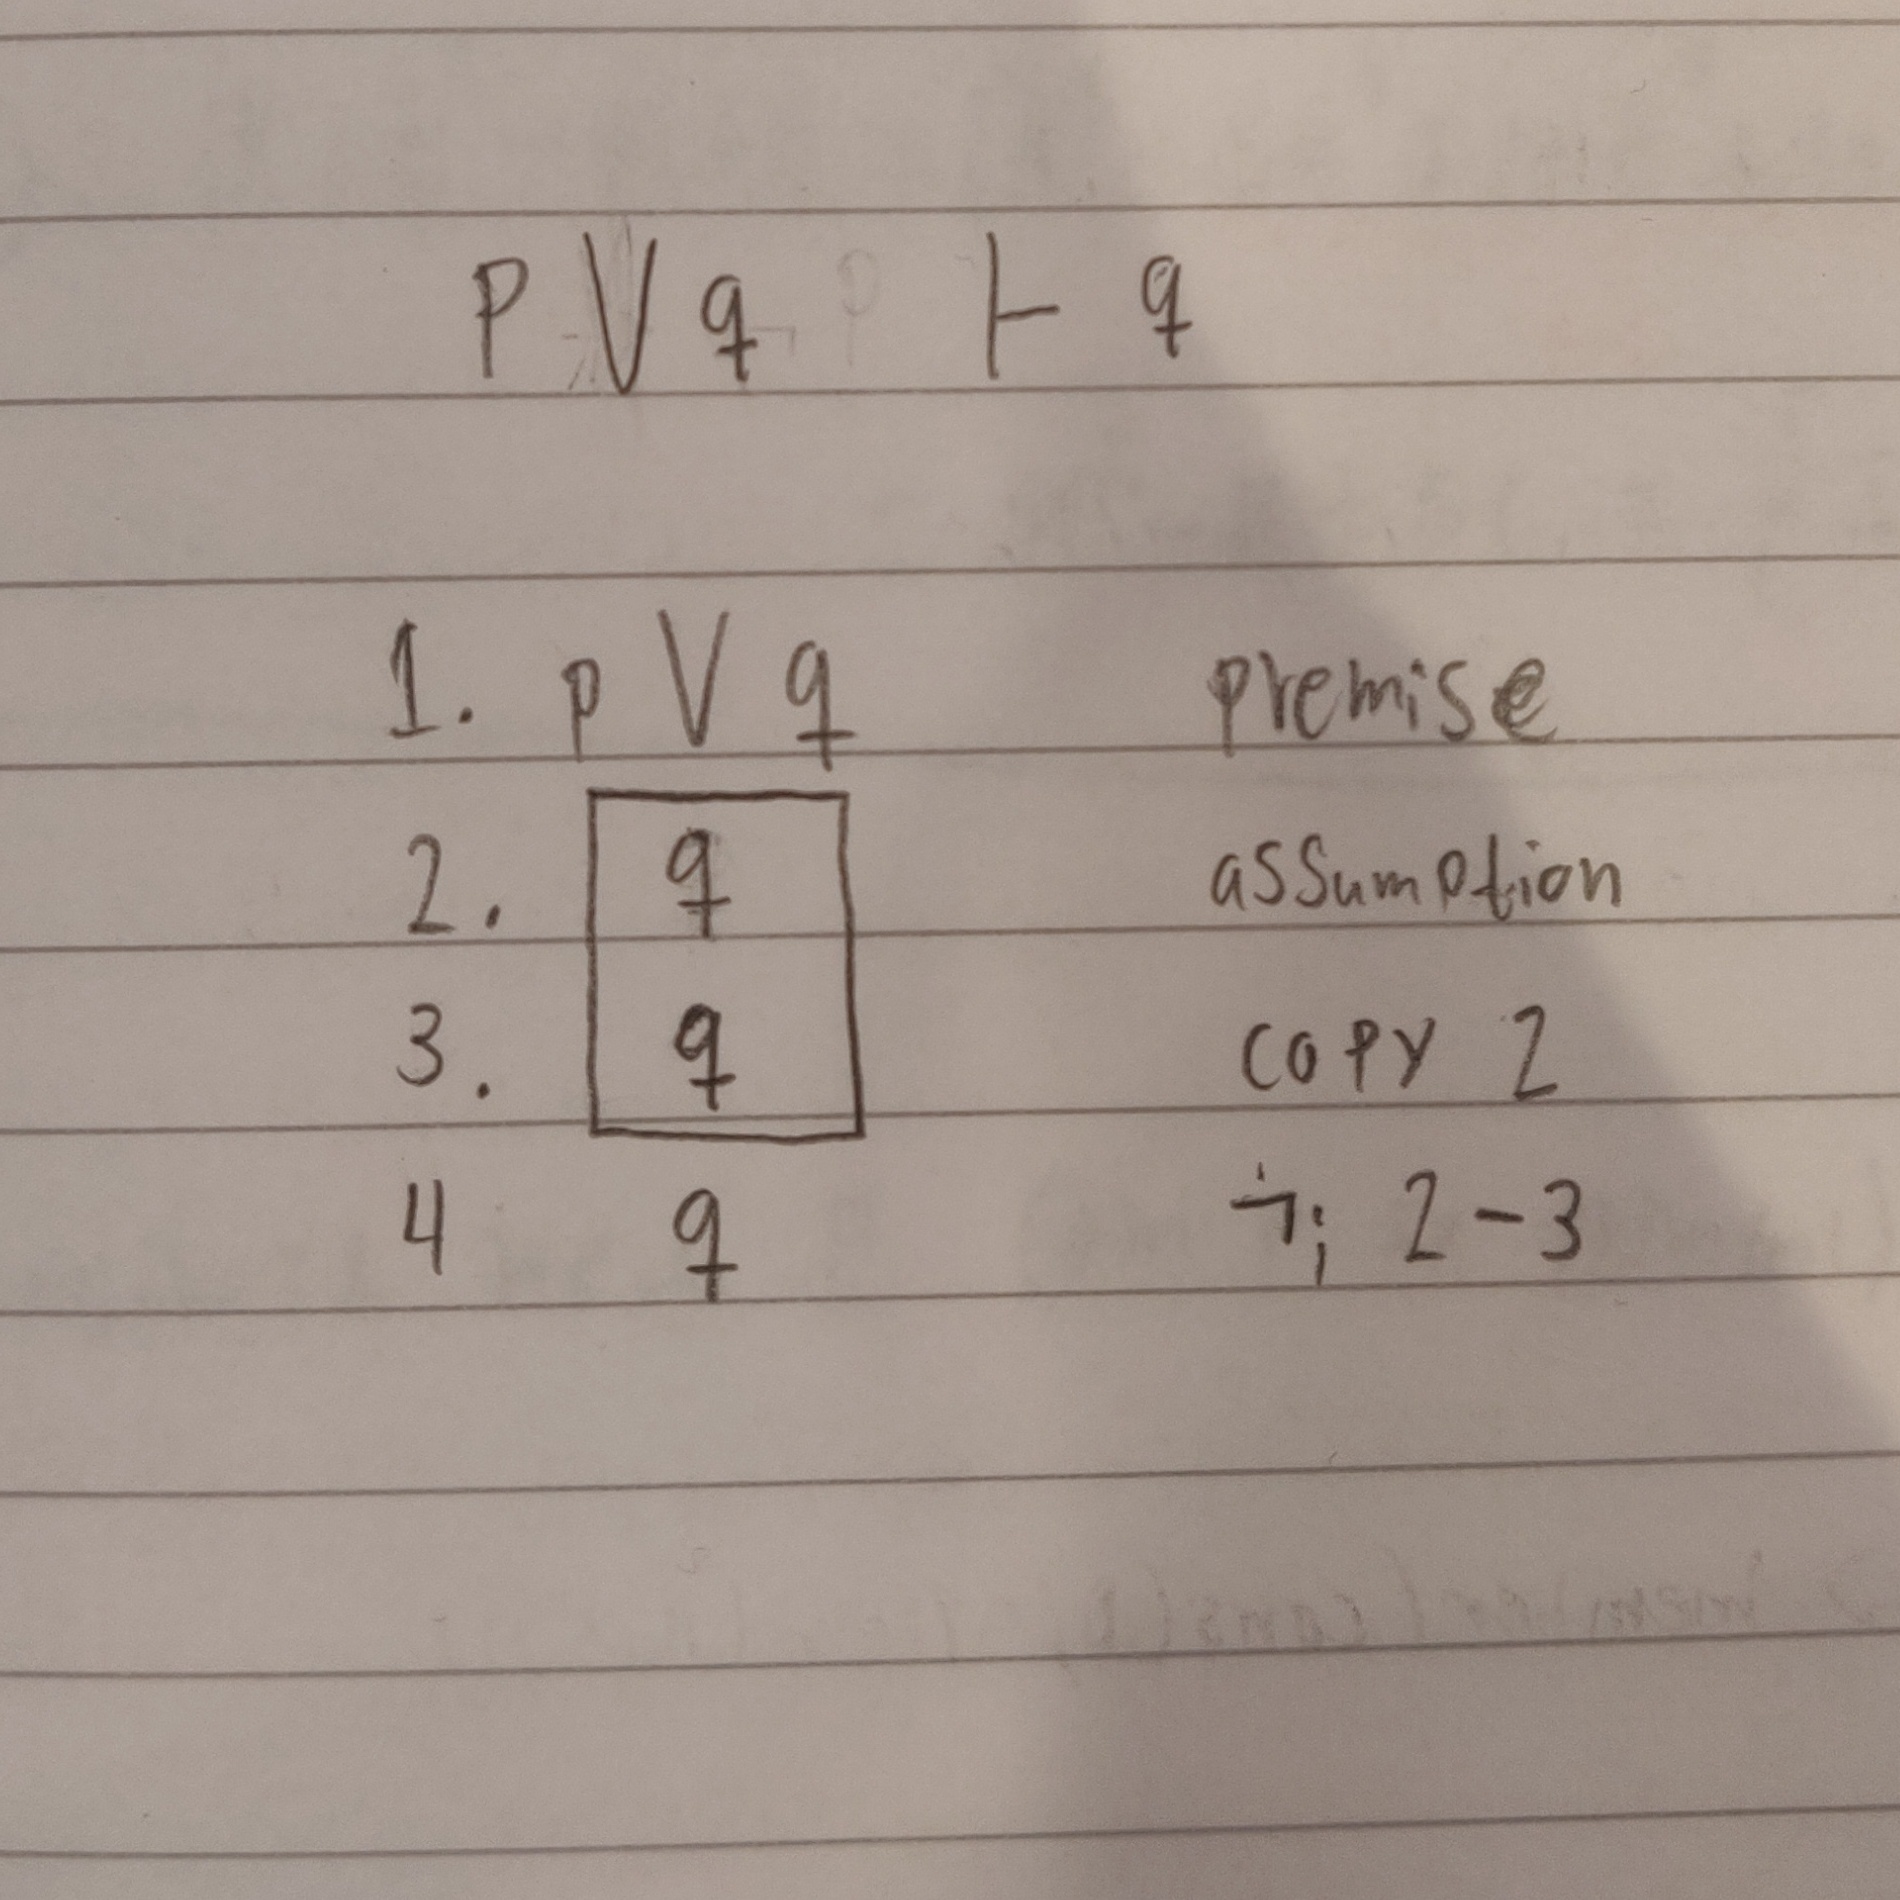 p ∨ q ⊢ q
1. p ∨ q premise
2. q assumption
3. q copy 2
4 q ¬i 2-3